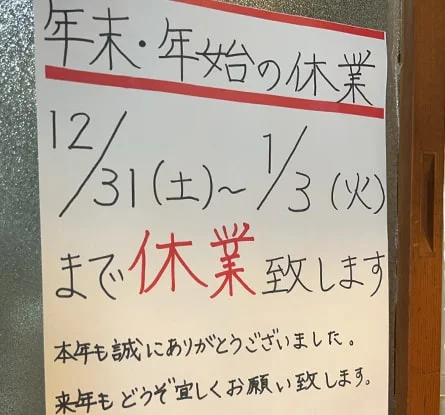 年末・年始の休業
12/31(土)～1/3(火)
まで休業致します
本年も誠にありがとうございました。
来年もどうぞ宜しくお願い致します。